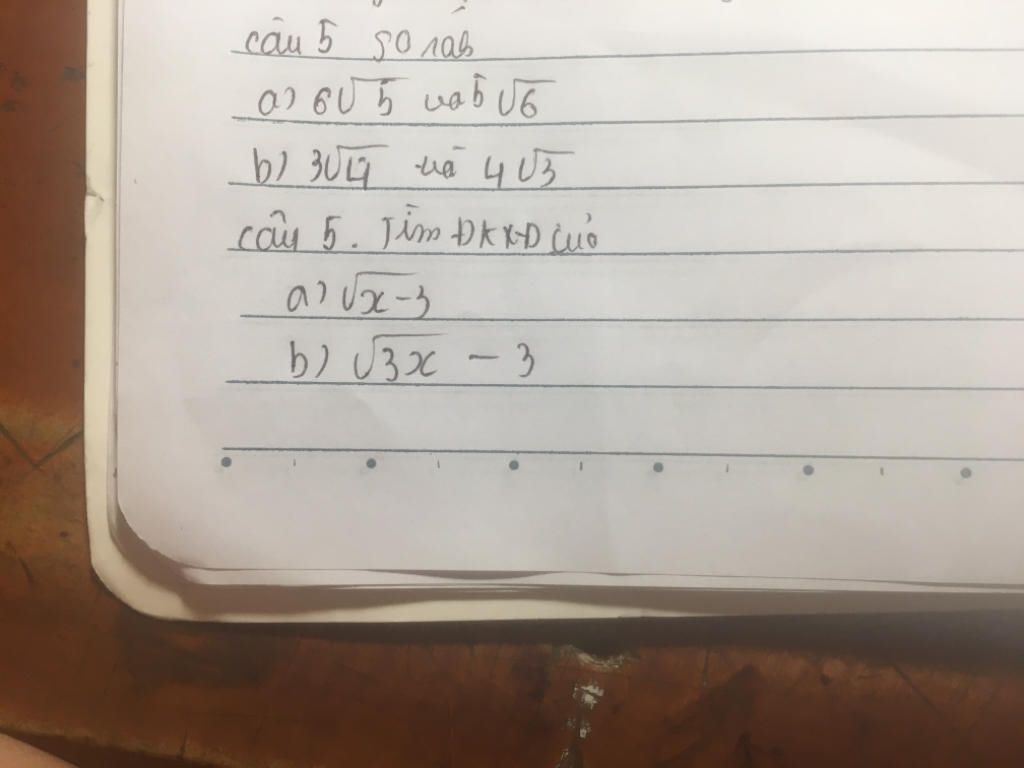 câu 5 so sánh
a) 6√5 và 5√6
b) 3√4 và 4√3
câu 5. Tìm ĐKXĐ của
a) √x-3
b) √3x - 3